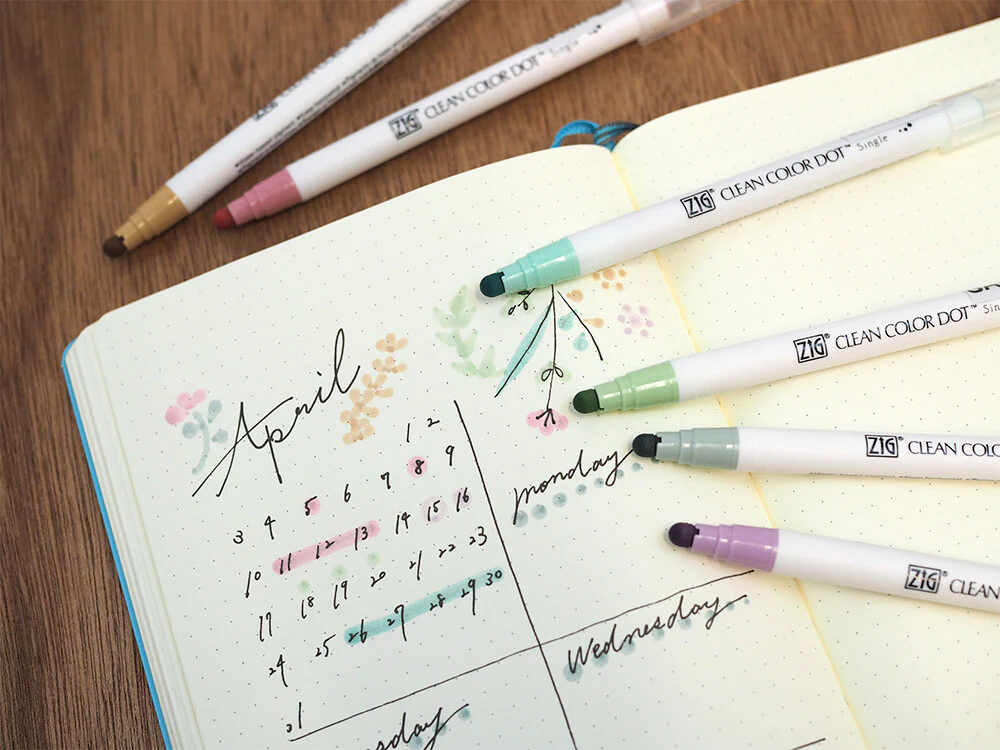 ZIG
ZIG® CLEAN COLOR DOT™ Single
ZIG® CLEAN COLOR DOT™ Single
ZIG® CLEAN COLOR DOT™ Sin
ZIG® CLEAN COLO
ZIG® CLEAN
April
1 2
3 4 5 6 7 8 9
10 11 12 13 14 15 16
17 18 19 20 21 22 23
24 25 26 27 28 29 30
monday
Wednesday
sday